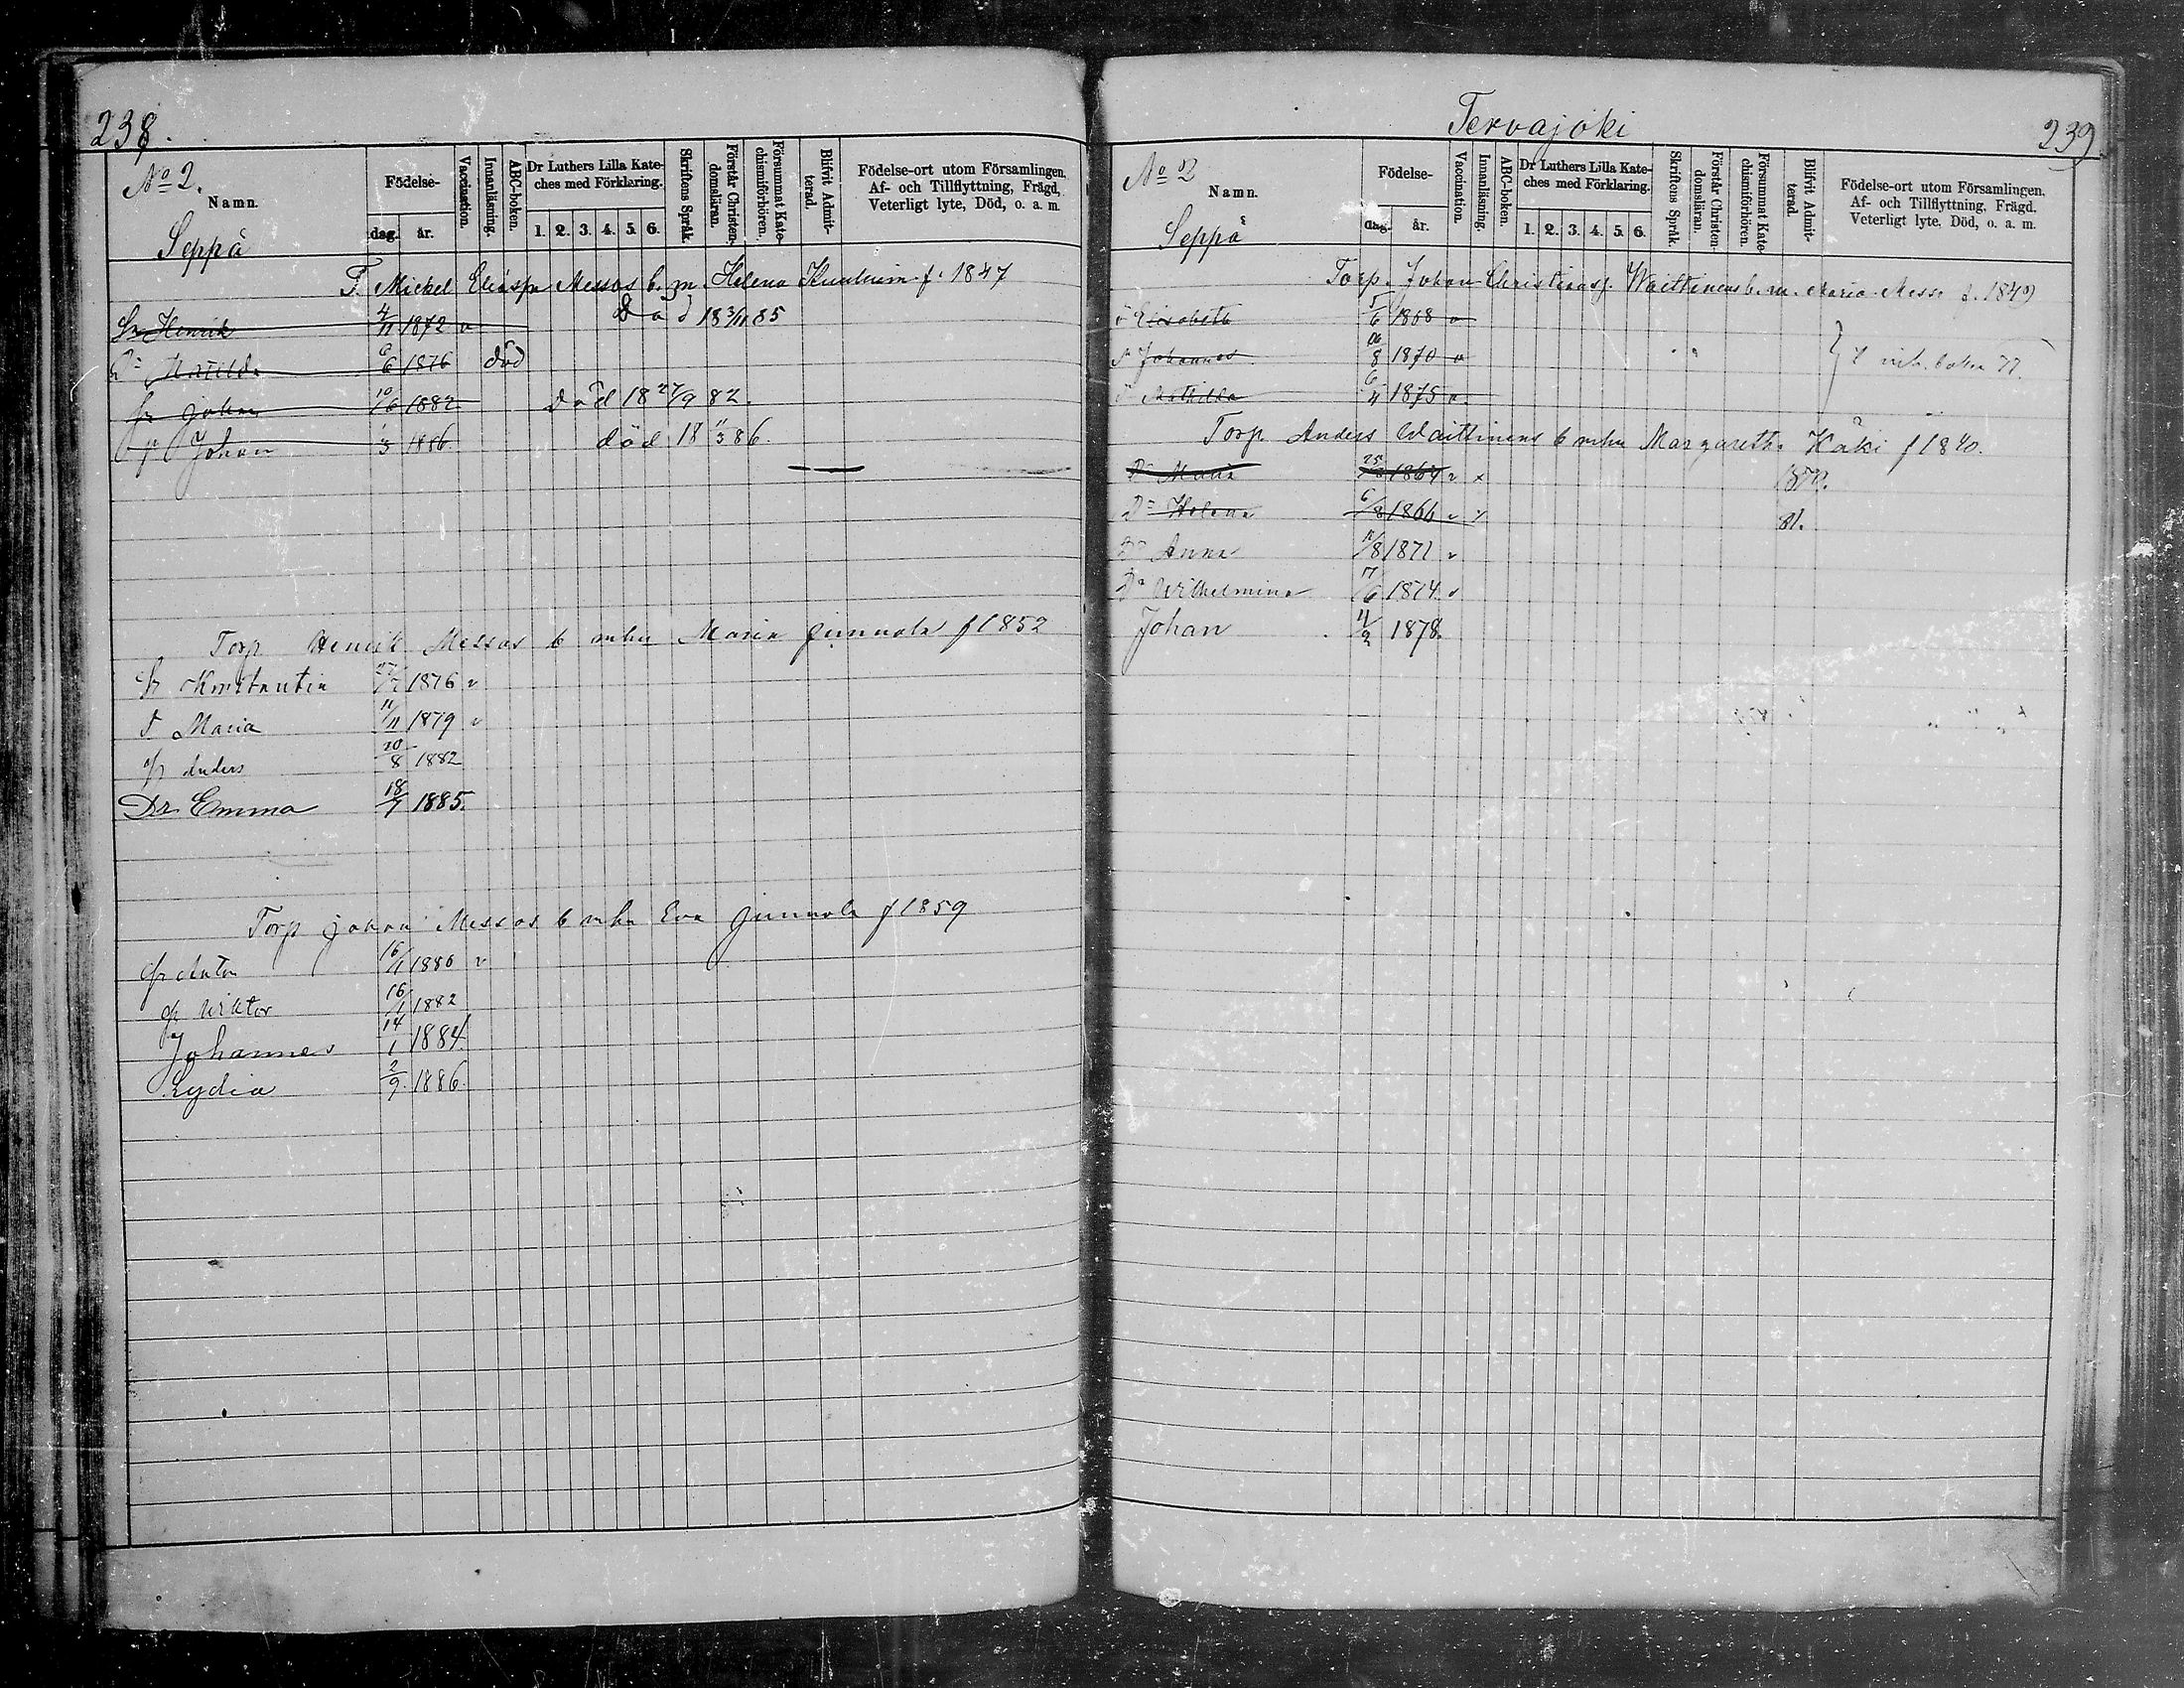 238.
No 2.
Namn.
Födelse-
dag.
år.
Vaccination.
Innanläsning.
ABC-boken.
Dr Luthers Lilla Kate-
ches med Förklaring.
1. 2. 3. 4. 5. 6.
Skriftens Språk.
Förstår Christen-
domsläran.
Försummat Kate-
chismiförhören.
Blifvit Admit-
terad.
Födelse-ort utom Församlingen.
Af- och Tillflyttning, Frägd,
Veterligt lyte, Död, o. a. m.
Seppä
T. Mickel Eliaspn Messos b. m. Helena f. 1847
Sr Henrik 4/11 1872 v Död 18 3/11 85
Dr Matilda 6/6 1876 död
Sr Johan 10/6 1882 Död 18 27/9 82.
Sr Johan 1/3 1886. död 18 11/3 86.
Torp Henrik Messos b mhu Maria Junnola f 1852
Sr Konstantin 1876 v
d Maria 11/11 1879 v
Sr Anders 20/8 1882
Dr Emma 18/7 1885.
Torp Johan Messos b mhu Eva Junnola f 1859
Sr Anton 16/11 1880 v
Sr Wiktor 16/1 1882
Johannes 14/1 1884.
Lydia 2/9. 1886.
Tervajoki
239
No 2
Namn.
Födelse-
dag.
år.
Vaccination.
Innanläsning.
ABC-boken.
Dr Luthers Lilla Kate-
ches med Förklaring.
1. 2. 3. 4. 5. 6.
Skriftens Språk.
Förstår Christen-
domsläran.
Försummat Kate-
chismiförhören.
Blifvit Admit-
terad.
Födelse-ort utom Församlingen.
Af- och Tillflyttning, Frägd,
Veterligt lyte, Död, o. a. m.
Seppä
Torp. Johan Christiansf. Waittinens b. m. Maria Messo f. 1849
Elisabeth 5/6 1868 v
Johannes 1870 v
Mathilda 6/4 1875 v.
Torp Anders Waittinens b mhu Margaretha Käki f 1840.
Dr Maria 1864 v x
Dr Helena 6/8 1866 v x 81.
Dr Anna 11/8 1871 v
Dr Wilhelmina 17/6 1874 v
Johan 4/2 1878.